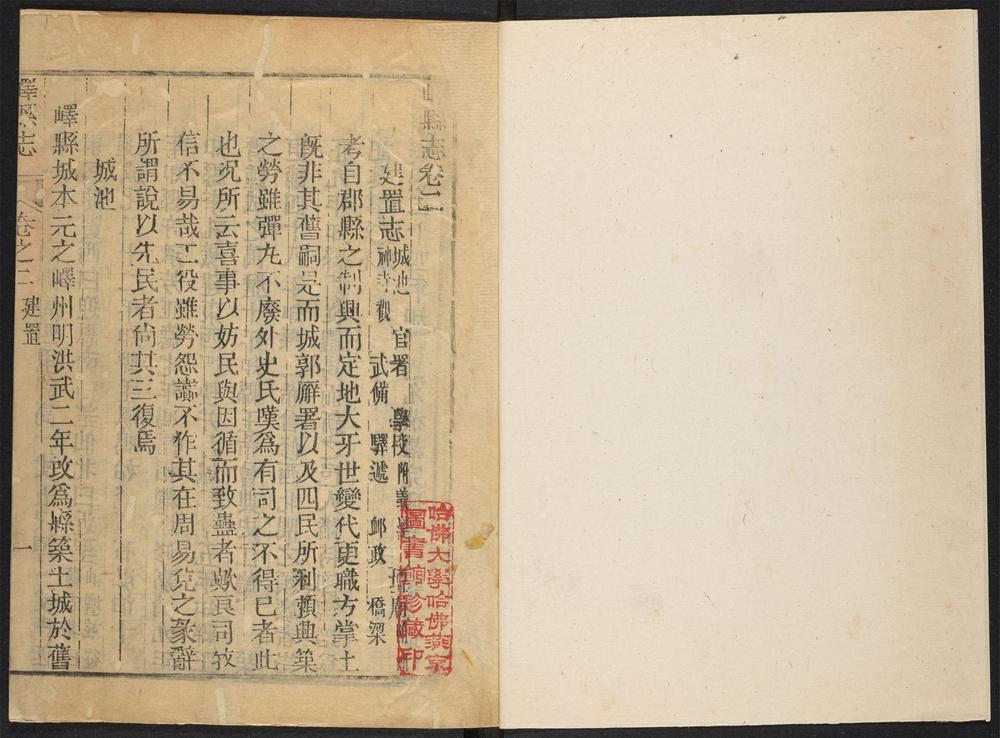 嶧縣志卷二
建置志 城池 官署 學校附義學 壇廟
神寺觀 武備 驛遞 郵政 橋梁
考自郡縣之制興而定地犬牙世變代更職方掌土
旣非其舊嗣是而城郭廨署以及四民所利賴興築
之勞雖彈丸不廢外史氏嘆爲有司之不得已者此
也況所云喜事以妨民與因循而致蠱者歟良司牧
信不易哉工役雖勞怨讟不作其在周易兌之彖辭
所謂說以先民者尙其三復焉
城池
嶧縣城本元之嶧州明洪武二年改爲縣築土城於舊
嶧縣志 卷之二 建置 一
哈佛大學哈佛燕京
圖書館珍藏印